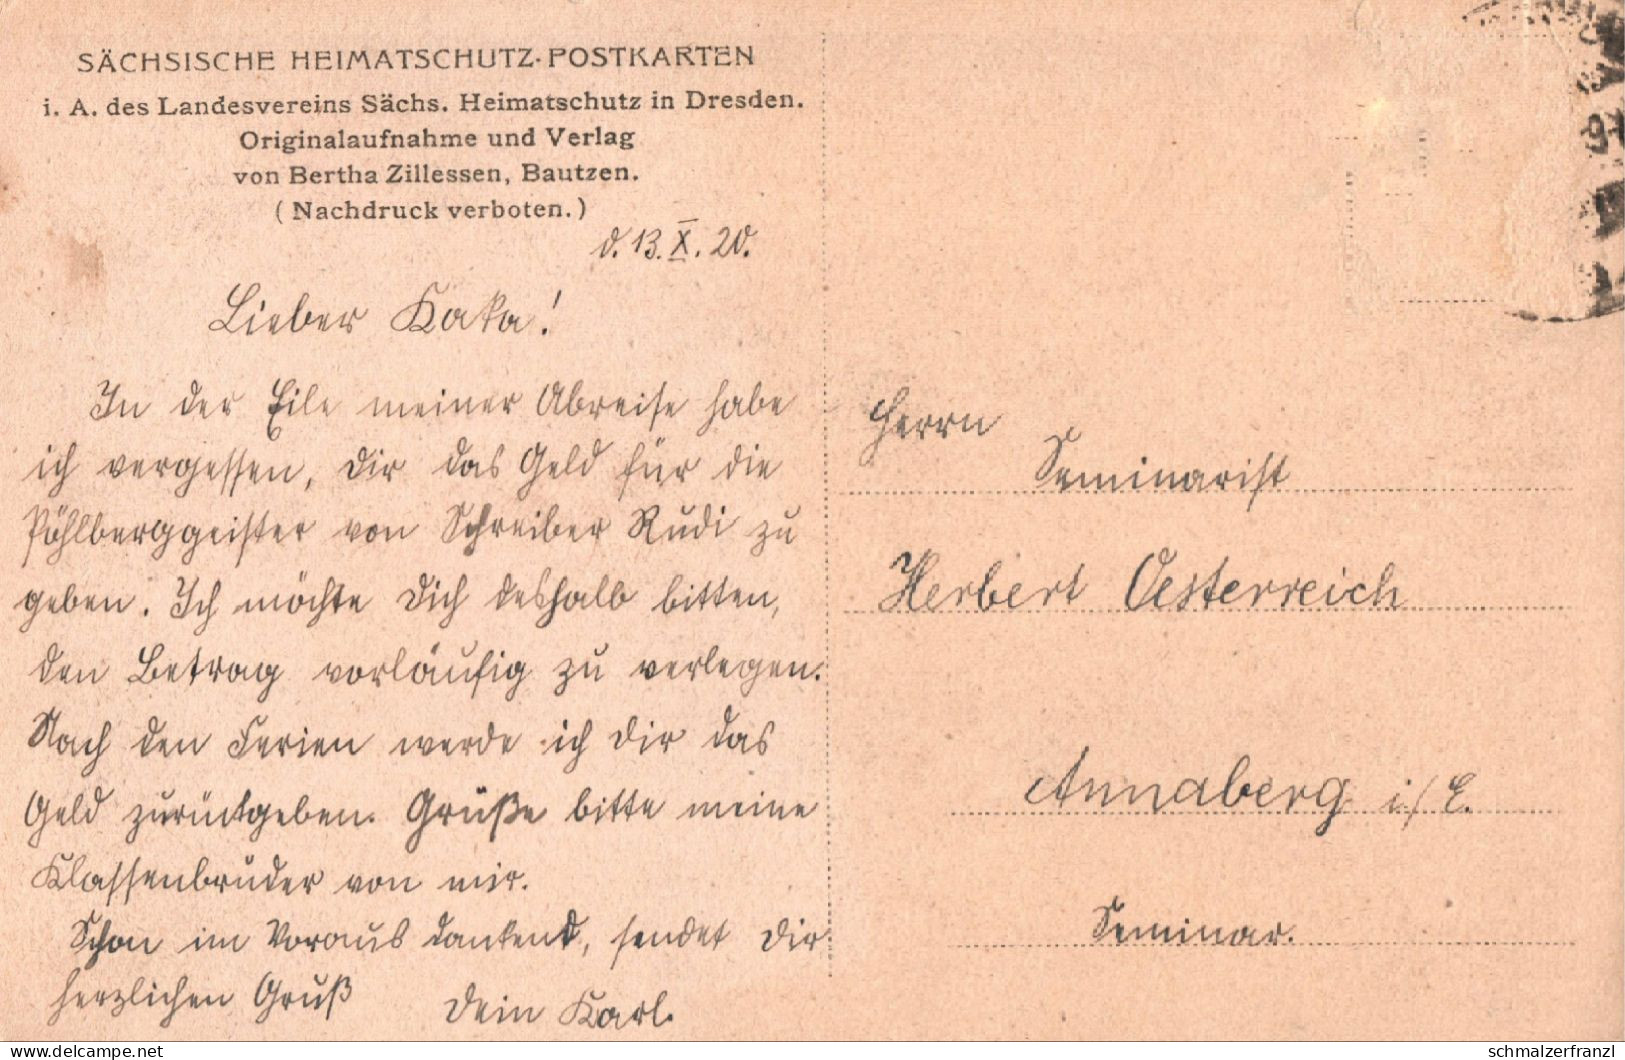 SÄCHSISCHE HEIMATSCHUTZ-POSTKARTEN
i. A. des Landesvereins Sächs. Heimatschutz in Dresden.
Originalaufnahme und Verlag
von Bertha Zillessen, Bautzen.
(Nachdruck verboten.)
d. 13. X. 20.
Lieber Kaka!
In der Eile meiner Abreise habe
ich vergessen, Dir das Geld für die
Pöhlberggeister von Schreiber Rudi zu
geben. Ich möchte Dich deshalb bitten,
den Betrag vorläufig zu verlegen.
Nach den Ferien werde ich Dir das
Geld zurückgeben. Grüße bitte meine
Klassenbrüder von mir.
Schon im Voraus dankend, sendet Dir
herzlichen Gruß Dein Karl.
Herrn
Seminarist
Herbert Oesterreich
Annaberg i./E.
Seminar.
www.delcampe.net
schmalzerfranzl